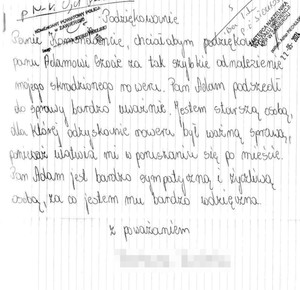 Podziękowanie
KOMENDANT POWIATOWY POLICJI
Panie Komendancie, chciałabym podziękować
panu Adamowi za tak szybkie odnalezienie
mojego skradzionego roweru. Pan Adam podszedł
do sprawy bardzo uważnie. Jestem starszą osobą,
dla której odzyskanie roweru był ważną sprawą,
ponieważ ułatwia mi w poruszaniu się po mieście.
Pan Adam jest bardzo sympatyczną i życzliwą
osobą, za co jestem mu bardzo wdzięczna.
z poważaniem